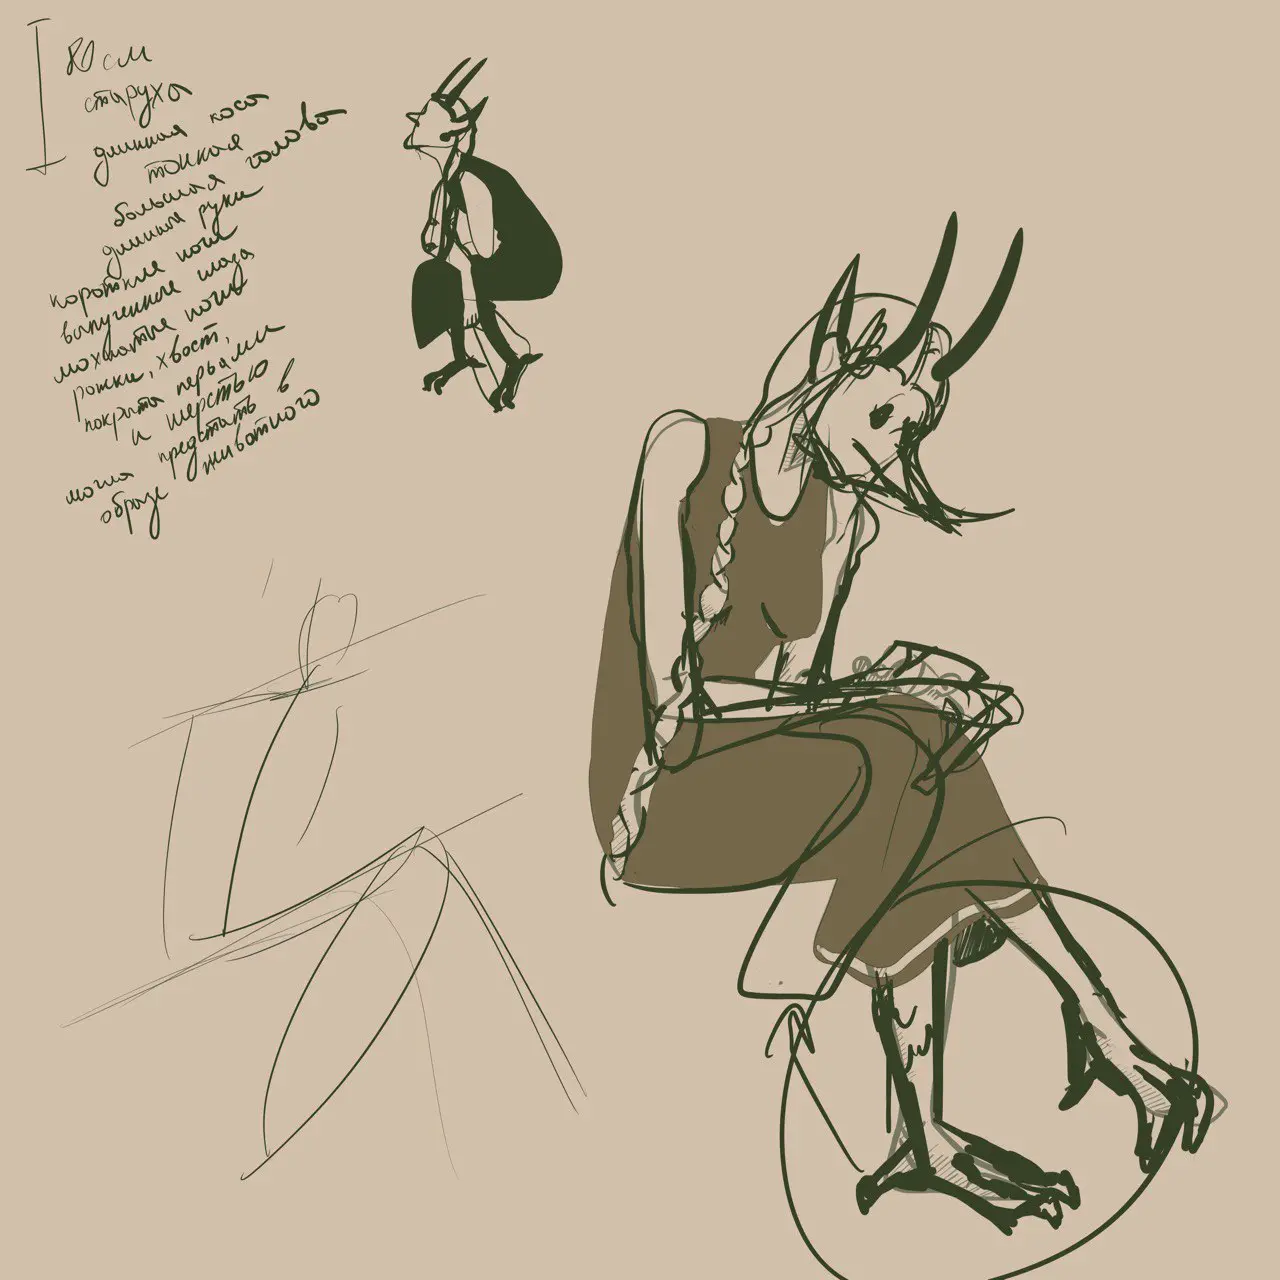 80 см
старуха
длинная коса
тонкая
большая голова
длинные руки
короткие ноги
выпученные глаза
мохнатые ноги
рожки, хвост,
покрыта перьями
и шерстью
может предстать в
образе животного